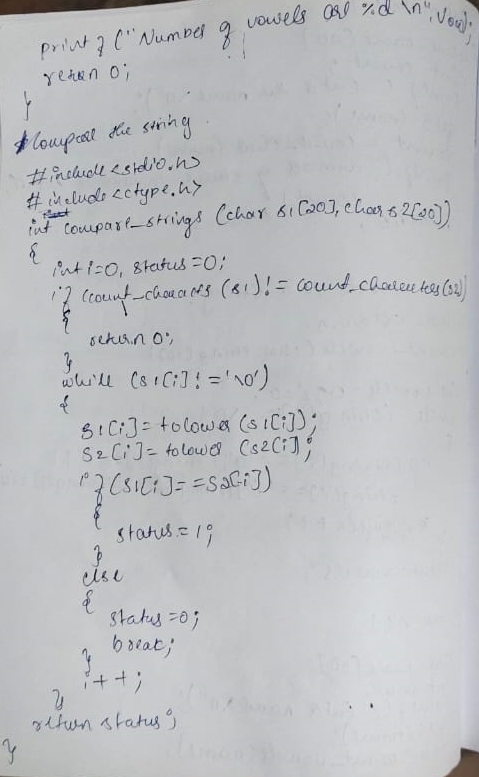 printf ("Number of vowels are %d \n", Vow);
return 0;
}
Compare the string
#include <stdio.h>
#include <ctype.h>
int compare_strings (char s1[20], char s2[20])
{
int i=0, status=0;
if (count_characters (s1) != count_characters(s2))
{
return 0;
}
while (s1[i] != '\0')
{
s1[i] = tolower (s1[i]);
s2[i] = tolower (s2[i];
if (s1[i] == s2[i])
{
status = 1;
}
else
{
status = 0;
break;
}
i++;
}
return status;
}